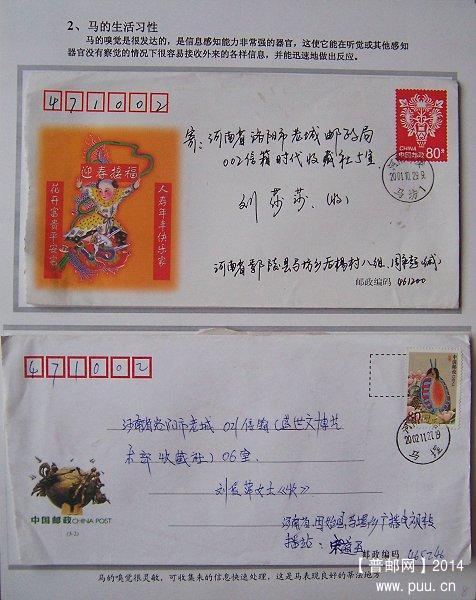 2、马的生活习性
马的嗅觉是很发达的，是信息感知能力非常强的器官，这使它能在听觉或其他感知
器官没有察觉的情况下很容易接收外来的各样信息，并能迅速地做出反应。
471002
寄：河南省洛阳市老城邮政局
002信箱时代收藏社5室
刘莎莎（收）
河南省鄢陵县马坊乡后杨村八组
邮政编码 461200
迎春接福
花开富贵平安宫
人寿年丰快乐家
CHINA
中国邮政
80分
2001.10.29.9
马坊1
471002
河南省洛阳市老城 021信箱
收藏社）06室
女士<收>
河南省固始县
邮政编码 465246
中国邮政 CHINA POST
(3-2)
中国邮政
80分
2002.11.27.19
马的嗅觉很灵敏，可收集来的信息快速处理，这是马表现良好的方法地方
【普邮网】2014
www.puu.cn